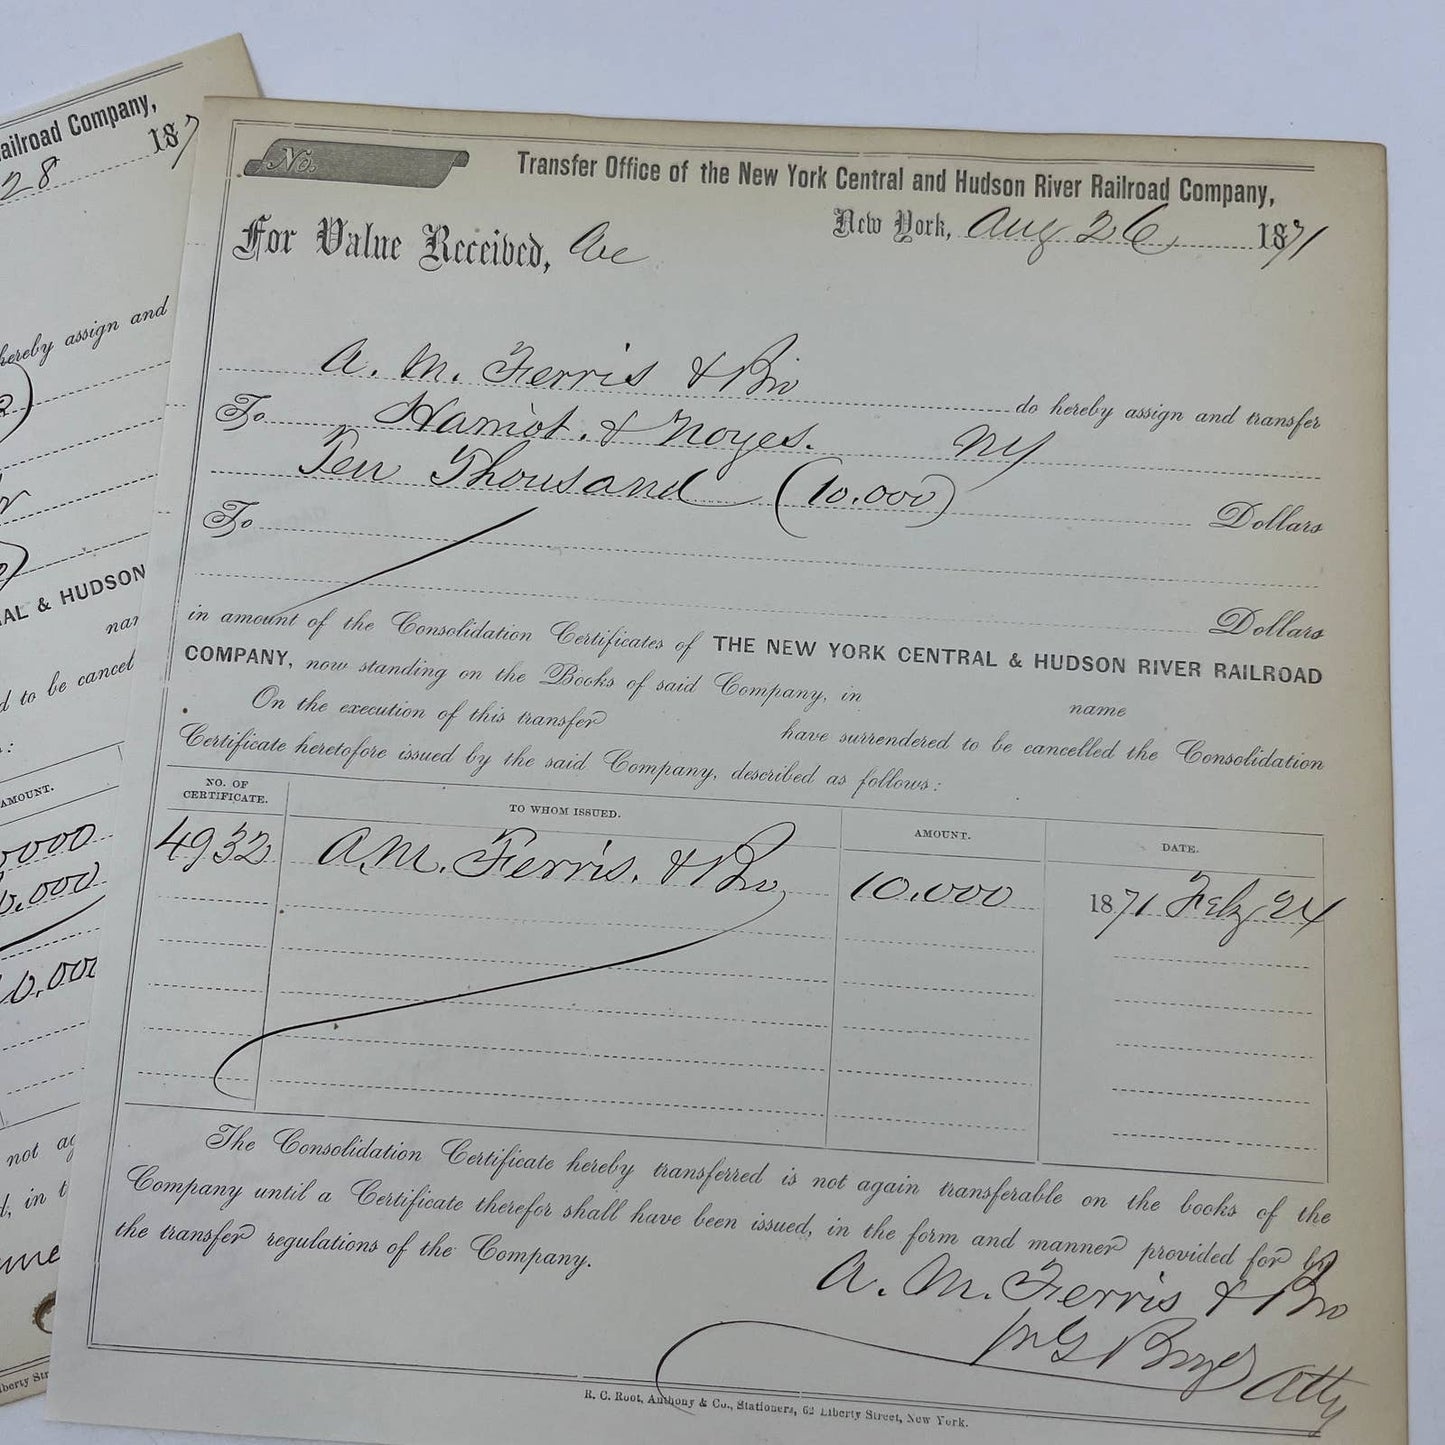 ailroad Company,
28 187
hereby assign and
AL & HUDSON
nar
d to be cancel
s:
AMOUNT.
0,000
not ag
d, in t
Liberty Str
No.
Transfer Office of the New York Central and Hudson River Railroad Company,
New York, Aug 26, 1871
For Value Received, &c
A. M. Ferris & Bro
do hereby assign and transfer
To Harriot. & Noyes. NY
Ten Thousand (10.000) Dollars
To
Dollars
in amount of the Consolidation Certificates of THE NEW YORK CENTRAL & HUDSON RIVER RAILROAD
COMPANY, now standing on the Books of said Company, in name
On the execution of this transfer have surrendered to be cancelled the Consolidation
Certificate heretofore issued by the said Company, described as follows:
NO. OF CERTIFICATE. TO WHOM ISSUED. AMOUNT. DATE.
4932 A.M. Ferris. & Bro, 10.000 1871 Feby 24
The Consolidation Certificate hereby transferred is not again transferable on the books of the
Company until a Certificate therefor shall have been issued, in the form and manner provided for by
the transfer regulations of the Company.
A. M. Ferris & Bro
Atty
R. C. Root, Anthony & Co., Stationers, 62 Liberty Street, New York.